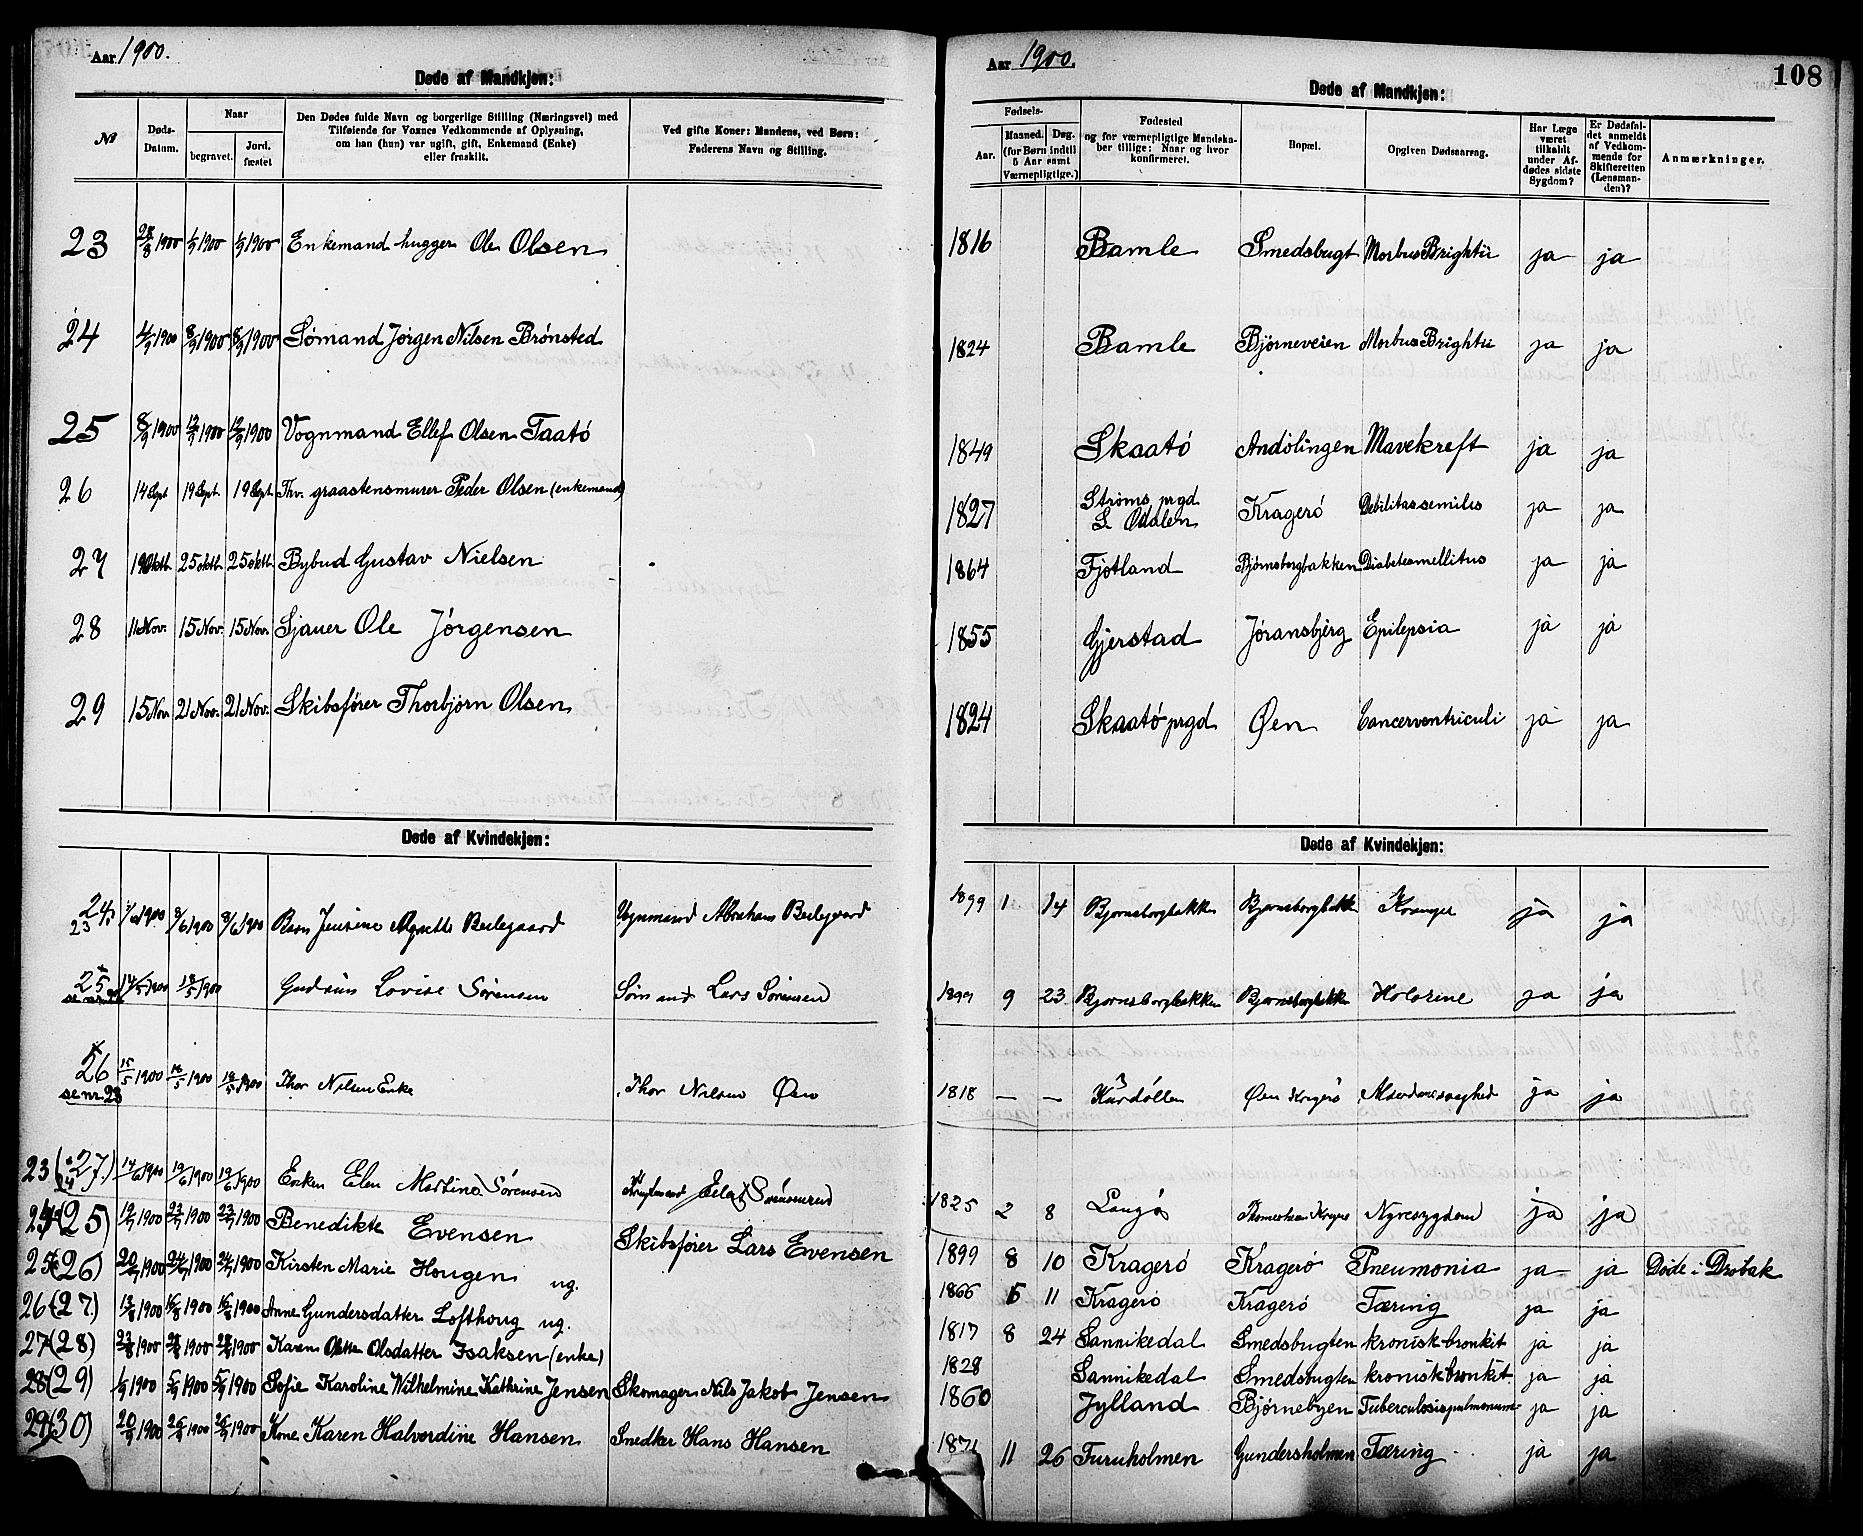 Aar 1900.
Døde af Mandkjøn:
№ | Døds-Datum. | Naar begravet. | Jord. fæstet | Den Dødes fulde Navn og borgerlige Stilling (Næringsvei) med Tilføiende for Voxnes Vedkommende af Oplysning, om han (hun) var ugift, gift, Enkemand (Enke) eller fraskilt. | Ved gifte Koner: Mandens, ved Børn: Faderens Navn og Stilling.
23 | 28/8 1900 | 1/9 1900 | 1/9 1900 | Enkemand hugger Ole Olsen
24 | 4/9 1900 | 8/9 1900 | 8/9 1900 | Sømand Jørgen Nilsen Brønsted
25 | 8/9 1900 | 12/9 1900 | 12/9 1900 | Vognmand Ellef Olsen Taatø
26 | 14 Sept | 19 Sept. | 19 Sept. | Fhv. graastensmurer Peder Olsen (enkemand)
27 | 19 Oktb. | 25 oktb. | 25 oktb. | Bybud Gustav Nielsen
28 | 11 Nov. | 15 Nov. | 15 Nov. | Sjauer Ole Jørgensen
29 | 15 Nov. | 21 Nov. | 21 Nov. | Skibsfører Thorbjørn Olsen
Døde af Kvindekjøn:
24 23 | 1900 | 8/6 1900 | 8/6 1900 | Barn Jensine Agnette | Abraham
25 se nr. | 14/5 1900 | 18/5 1900 | Gudrun Lovise Sørensen | Sømand Lars Sørensen
26 se nr. 23 | 15/5 1900 | 1900 | 19/5 1900 | Thor Nilsen Enke | Thor Nilsen Øen
23 (27.) 24 | 14/6 1900 | 19/6 1900 | 19/6 1900 | Enken Elen Martine Sørensen
24 (25) | 19/7 1900 | 23/7 1900 | 23/7 1900 | Benedikte Evensen | Skibsfører Lars Evensen
25 (26) | 20/7 1900 | 24/7 1900 | 24/7 1900 | Kirsten Marie Hougen ug.
26 (27) | 13/8 1900 | 16/8 1900 | 16/8 1900 | Anne Gundersdatter Lofthoug ug.
27 (28) | 23/8 1900 | 28/8 1900 | 28/8 1900 | Karen Olsdatter Isaksen (enke)
28 (29) | 1/9 1900 | 5/9 1900 | 5/9 1900 | Sofie Karoline Wilhelmine Kathrine Jensen | Skomager Nils Jakob Jensen
29 (30) | 20/9 1900 | 26/9 1900 | 26/9 1900 | Kone Karen Halvordine Hansen | Snedker Hans Hansen
Aar 1900.
108
Døde af Mandkjøn:
Fødsels- Aar. | Maaned. Døg. (for Børn indtil 5 Aar samt Værnepligtige.) | Fødested og for værnepligtige Mandskaber tillige: Naar og hvor konfirmeret. | Bopæl. | Opgiven Dødsaarsag. | Har Læge været tilkaldt under Afdødes sidste Sygdom? | Er Dødsfaldet anmeldt af Vedkommende for Skifteretten (Lensmanden)? | Anmærkninger.
1816 | Bamle | Smedsbugt | Morbus Brightii | ja | ja
1824 | Bamle | Bjørneveien | Morbus Brightii | ja | ja
1849 | Skaatø | Andølingen | Mavekreft | ja | ja
1827 | Strøms prgd S. Odalen | Kragerø | Debilitas senilis | ja | ja
1864 | Fjotland | Bjørnsborgbakken | Diabetes mellitus | ja | ja
1855 | Gjerstad | Jøransbjerg | Epilepsia | ja | ja
1824 | Skaatø prgd | Øen | Cancer ventriculi | ja | ja
Døde af Kvindekjøn:
1899 | 1 | 14 | Bjornsborgbakken | Bjornsborgbakken | ja | ja
1899 | 9 | 23 | Bjornsborgbakken | Bjornsborgbakken | Kolorine | ja | ja
1818 | — | — | Øen Kragerø | ja | ja
1825 | 2 | 8 | Langø | Nyresygdom | ja | ja
1899 | 8 | 10 | Kragerø | Kragerø | Pneumonia | ja | ja | Døde i Drøbak
1866 | 5 | 11 | Kragerø | Kragerø | Tæring | ja | ja
1817 | 8 | 24 | Sannikedal | Smedsbugten | kronisk bronkit | ja | ja
1828 | Sannikedal | Smedsbugten | kronisk bronkit | ja | ja
1860 | Jylland | Bjørnebyen | Tuberculosis pulmonum | ja | ja
1871 | 11 | 26 | Furuholmen | Gundersholmen | Tæring | ja | ja